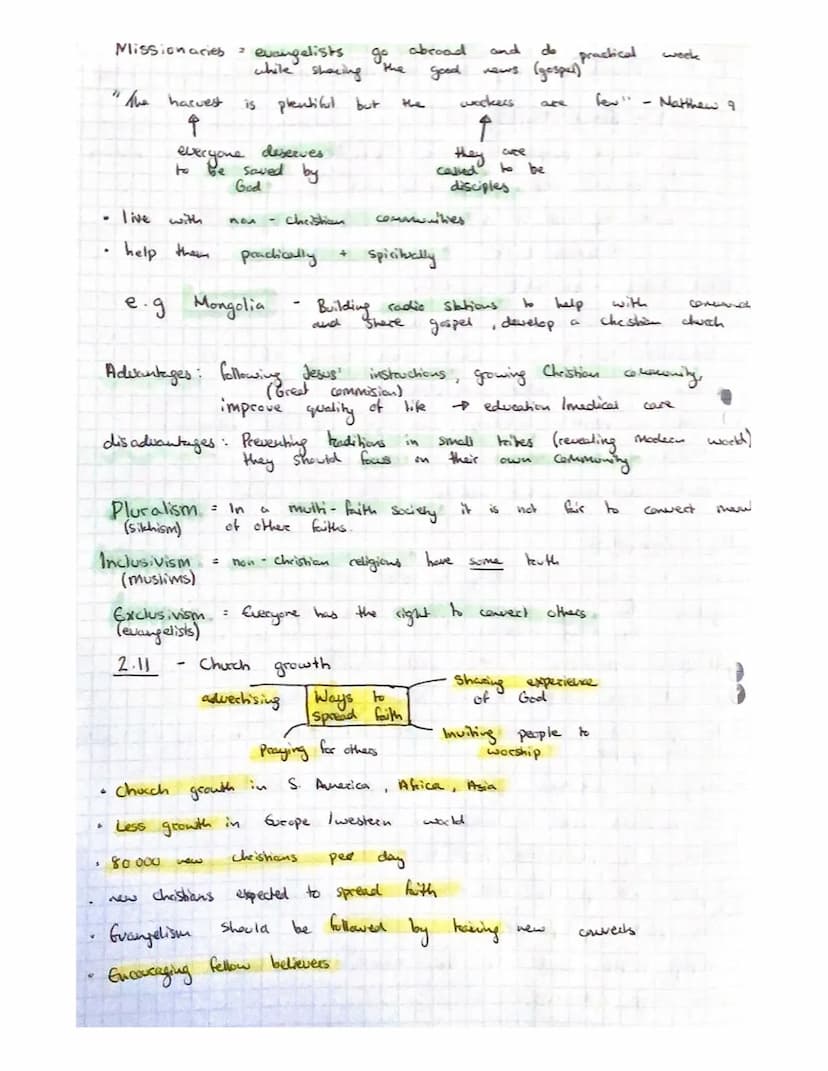 Missionaries = evangelists go abroad and do practical work
while sharing the good news (gospel)
"The harvest is plentiful but the workers are few" - Matthew 9
everyone deserves
to be saved by
God
they are
called to be
disciples
• live with non - Christian communities
• help them practically + spiritually
e.g Mongolia - Building radio stations to help with
and share gospel, develop a christian church
Advantages: following Jesus' instructions, growing Christian community,
(Great commision)
improve quality of life → education / medical care
disadvantages: Preventing traditions in small tribes (revealing modern world)
they should focus on their own community
Pluralism = In a multi-faith society it is not fair to convert
(sikhism) of other faiths.
Inclusivism = non-christian religions have some truth
(muslims)
Exclusivism = Everyone has the right to convert others.
(evangelists)
2.11 - Church growth
advertising
Ways to
spread faith
Sharing experience
of God
Praying for others
Inviting people to
worship
• Church growth in S. America, Africa, Asia
• Less growth in Europe / western world
• 80 000 new christians per day
• new christians expected to spread faith
• Evangelism should be followed by training new converts
• Encouraging fellow believers